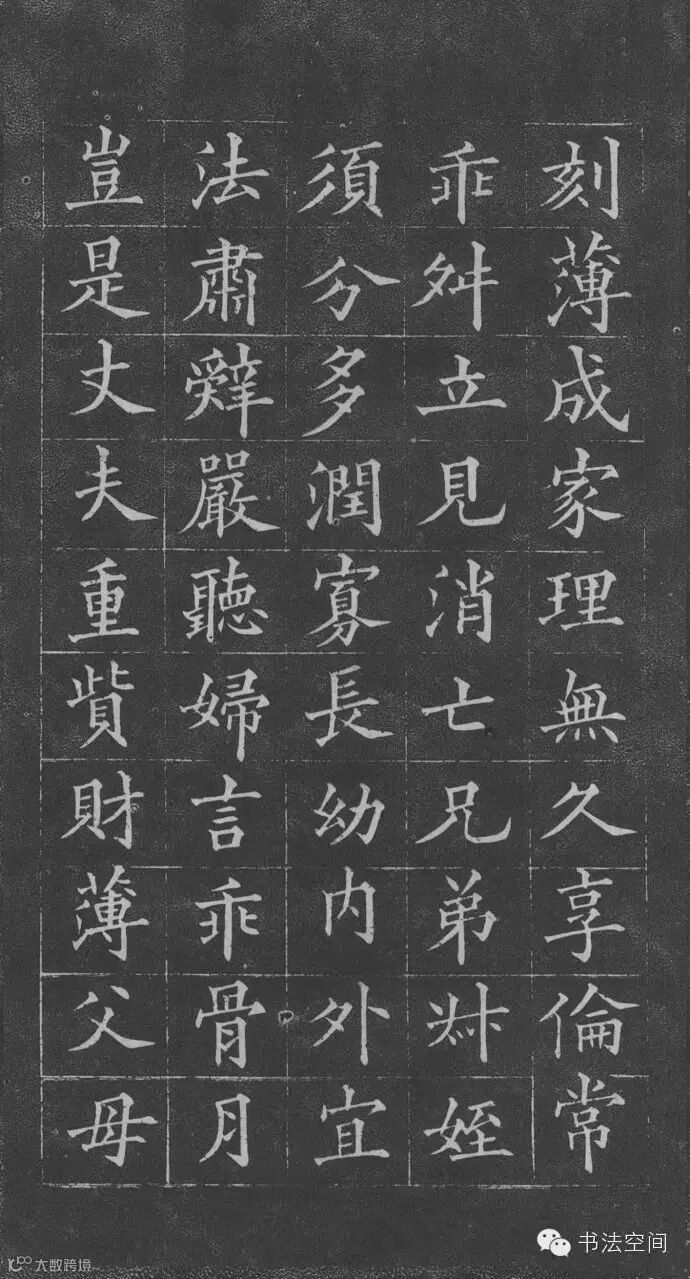 刻薄成家理無久享倫常
乖舛立見消亡兄弟叔姪
須分多潤寡長幼內外宜
法肅辭嚴聽婦言乖骨月
豈是丈夫重貲財薄父母
书法空间
大数跨境